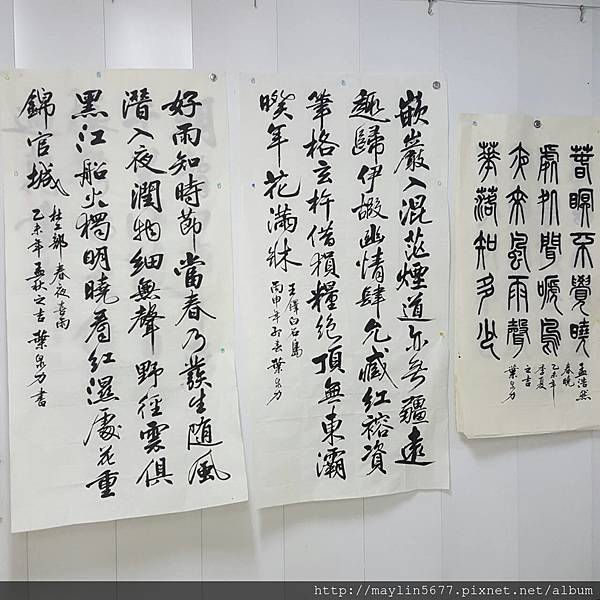 好雨知時節當春乃發生随風
潛入夜潤物細無聲野徑雲俱
黑江船火獨明曉看紅濕處花重
錦官城
杜工部 春夜喜雨
乙未年孟秋之吉 葉泉力書
嵌巖入混茫煙道亦无疆遠
趣歸伊嘏幽情肆允臧紅裕資
筆格玄杵借損糧絕頂無東灞
暌年花滿牀
王鐸白石島
丙申年孟春葉泉力
春眠不覺曉
處處聞啼鳥
夜來風雨聲
華落知多少
孟浩然
春曉
乙未年
季夏
之吉
葉泉力
http://maylin5677.pixnet.net/album